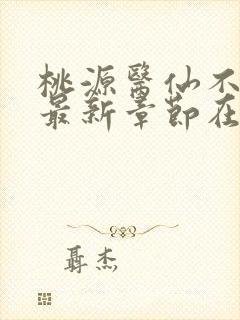 桃源醫仙不
最新章節在
聶杰